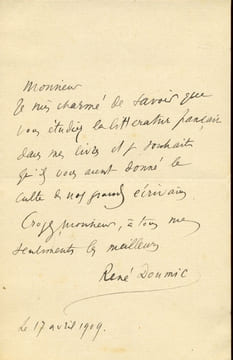 Monsieur
Je suis charmé de savoir que
vous étudiez la littérature française
dans mes livres et je souhaite
qu'ils vous aient donné le
culte de nos grands écrivains.
Croyez, monsieur, à tous mes
sentiments les meilleurs
René Doumic
Le 17 avril 1909.